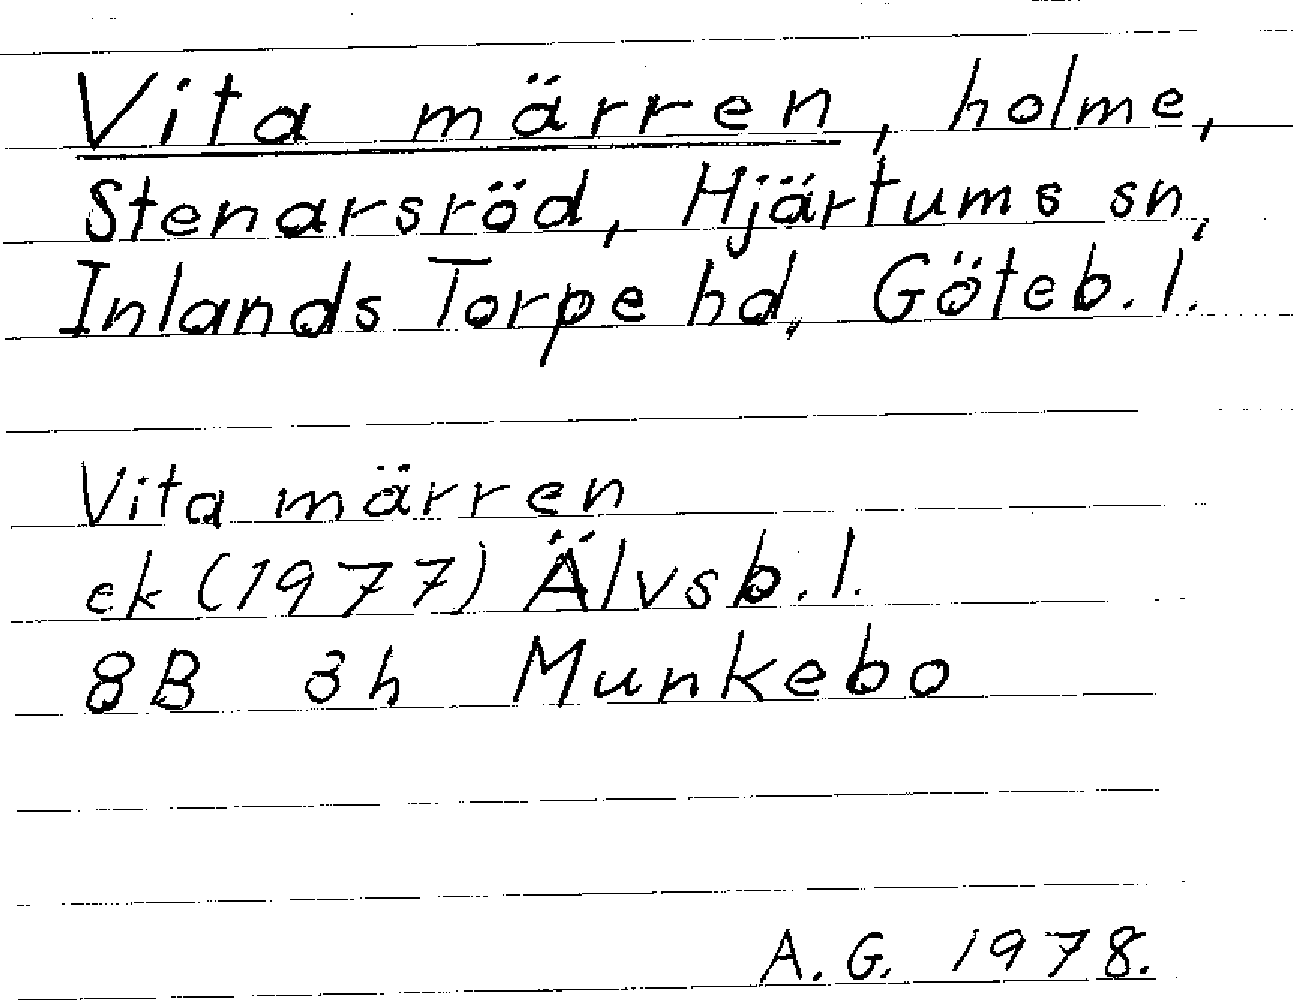 Vita märren, holme,
Stenarsröd, Hjärtums sn,
Inlands Torpe hd, Göteb. l.
Vita märren
ek (1977) Älvsb. l.
8B 3h Munkebo
A. G. 1978.